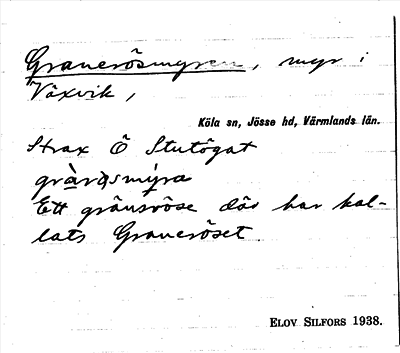 Graverösmyren, myr i
Växvik,
Köla sn, Jösse hd, Värmlands län.
Strax Ö Stutögat
Ett gränsröse där har kal-
lats Graveröset
ELOV SILFORS 1938.